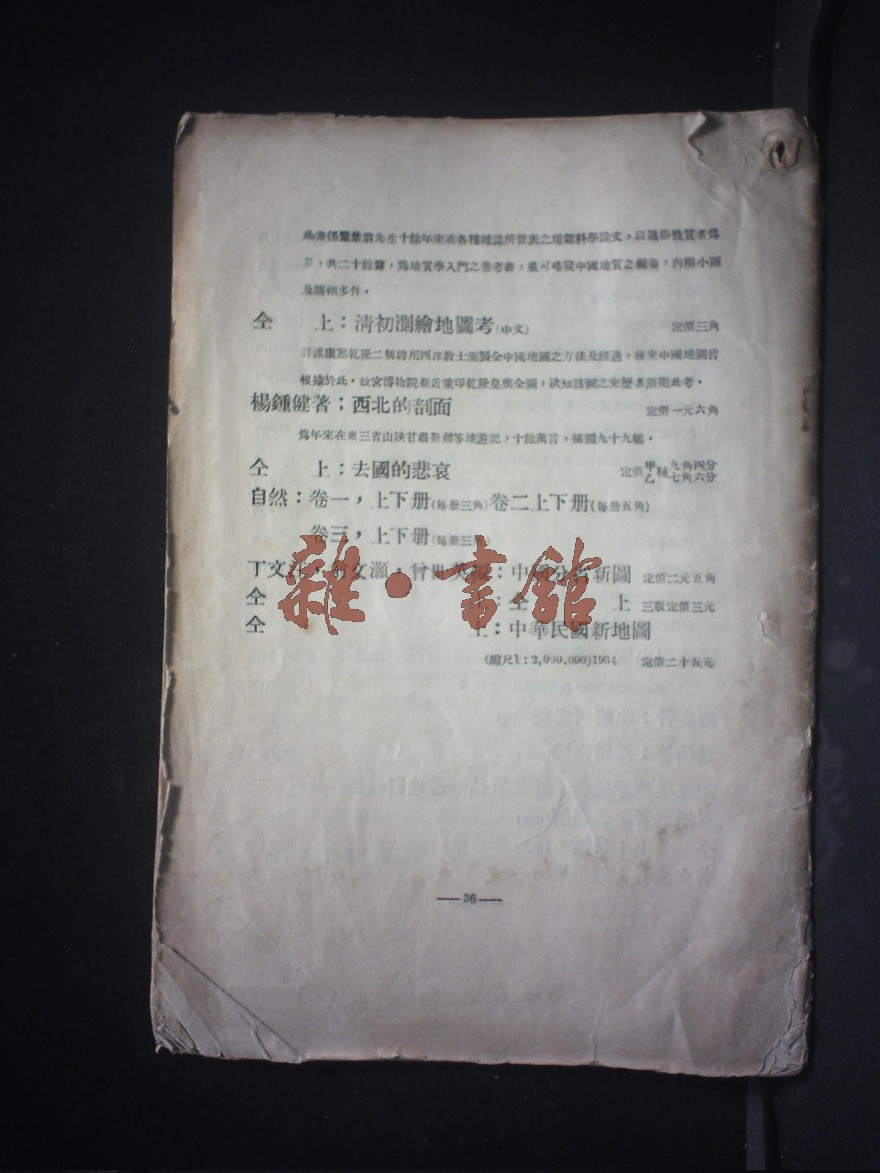 此書係彙集翁先生十餘年來在各種雜誌所發表之短篇科學論文，以通俗性質者爲
多，共二十餘篇，爲地質學入門之參考書，並可略窺中國地質之綱要，內附小圖
及題相多件。
仝　　上：清初測繪地圖考(中文)　　定價三角
詳述康熙乾隆二朝聘用西洋教士測製全中國地圖之方法及經過，後來中國地圖皆
根據於此。故宮博物院新近重印乾隆皇輿全圖，欲知該圖之來歷者須閱此考。
楊鍾健著；西北的剖面　　定價一元六角
爲年來在東三省山陝甘肅新疆等地遊記，十餘萬言，插圖九十九幅。
仝　　上：去國的悲哀　　定價甲乙種九角四分七角六分
自然：卷一，上下册(每册三角)卷二上下册(每册五角)
卷三，上下册(每册三角)
丁文江，翁文灝，曾世英編：中國分省新圖　定價二元五角
仝　　上：仝　　上　三版定價三元
仝　　上：中華民國新地圖
(縮尺1：2,000,000)1934　定價二十五元
雜·書館
—36—